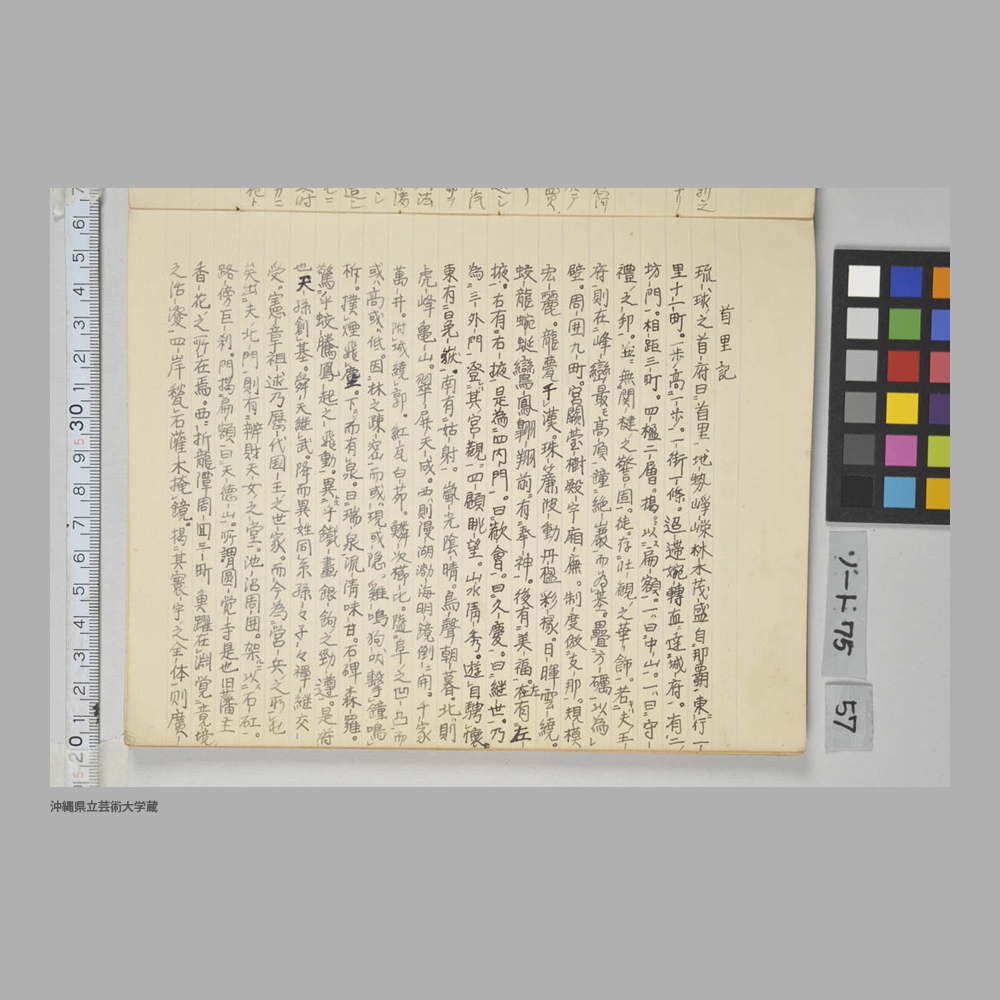 首里記
琉球之首府曰首里地勢崢嶸林木茂盛自那覇東行一
里十一町。一歩高一歩。一街一條。迢遞婉轉直達城府。有二
坊門。相距三町。四楹二層。揭以扁額。一曰中山。一曰守
禮之邦。並無関楗之警固。徒存壮観之華飾。若夫王
府則在峰巒最高頂。鏟絶巖而為基。疊方礪以為
壁。周囲九町。宮闕瑩樹殿宇廂廡。制度倣支那。規模
宏麗。龍甍千漢。珠簾陵動丹楹彩椽。日暉雲繞。
蛟龍蜿蜒鸞鳳翺翔前有奉神。後有美福。左有左
掖。右有右掖是為四内門。曰歓會。曰久慶。曰継世。乃
為三外門登其宮観四顧眺望。山水清秀。遊自騁懐。
東有晃嶽。南有姑射。嵐光陰晴。鳥聲朝暮。北則
虎峰亀山。翠屏天成。西則漫湖渤海明鏡倒開。千家
萬井。附城繞郭。紅瓦白茆。鱗次櫛比。隨阜之凹凸而
或高或低。因林之疎密而或現或隠。雞鳴狗吠撃鐘鳴
柝。撲煙飛下而有泉。曰瑞泉流清味甘。石碑森羅。
驚乎蛟騰鳳起之飛動。異乎鐵畫銀鈎之勁遵。是為
也天孫創基。舜天継武。降而異姓同系孫々子々禪継交
受。憲章祖述乃歴代国王之世家。而今為営兵之
矣出夫北門則有辨財天女之堂。池沼周囲。架以石矼。
路傍巨刹。門揭扁額曰天徳山。所謂圓覚寺是也旧藩主
香花之所在焉。西折龍潭周回三町 魚躍在淵覚竟境
之活溌。四岸甃石灌木掩鏡。揭其寰宇之全体則廣
ゾード75
57
沖縄県立芸術大学蔵